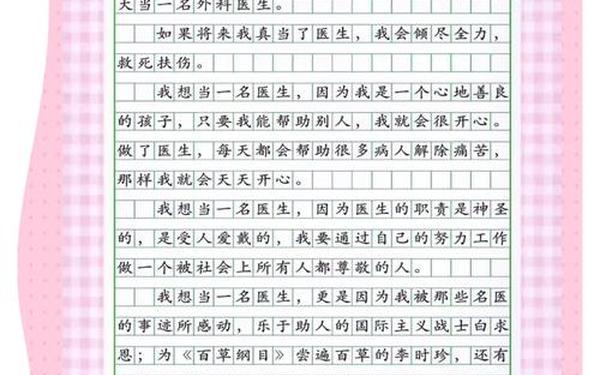 天当一名外科医生。
如果将来我真当了医生，我会倾尽全力，
救死扶伤。
我想当一名医生，因为我是一个心地善良
的孩子，只要我能帮助别人，我就会很开心。
做了医生，每天都会帮助很多病人解除痛苦，
那样我就会天天开心。
我想当一名医生，因为医生的职责是神圣
的，是受人爱戴的，我要通过自己的努力工作
做一个被社会上所有人都尊敬的人。
我想当一名医生，更是因为我被那些名医
的事迹所感动，乐于助人的国际主义战士白求
恩；为《百草纲目》尝遍百草的李时珍，还有